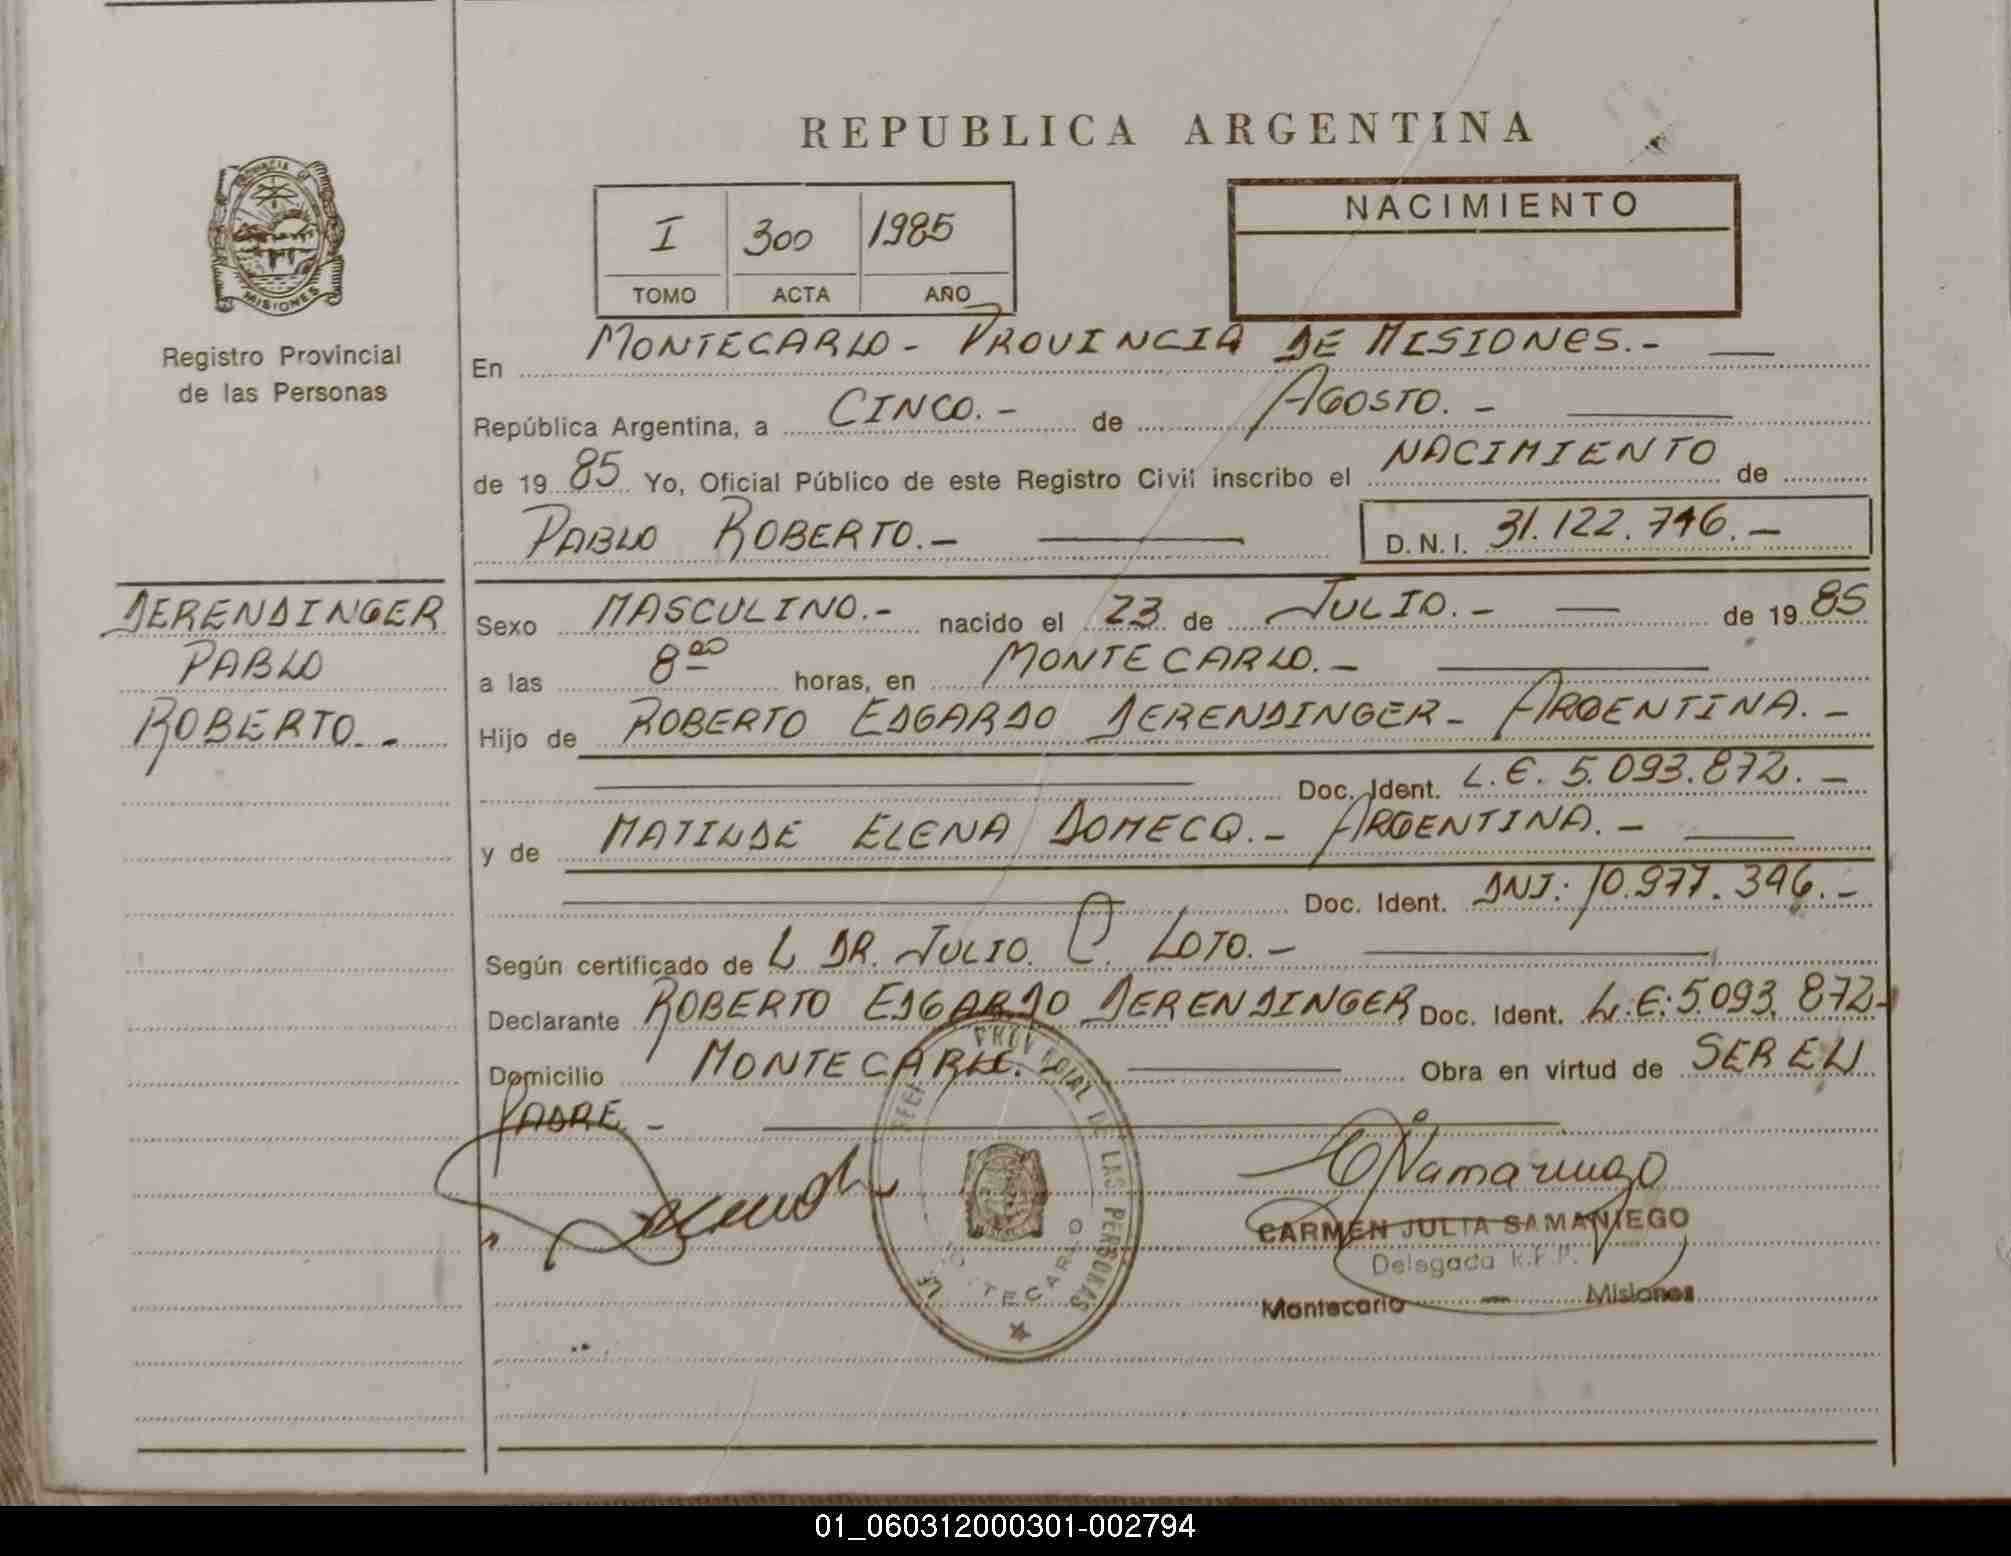 REPUBLICA ARGENTINA
PROVINCIA DE MISIONES
Registro Provincial
de las Personas
I 300 1985
TOMO ACTA AÑO
NACIMIENTO
En MONTECARLO - PROVINCIA DE MISIONES.-
República Argentina, a CINCO.- de AGOSTO.-
de 1985 Yo, Oficial Público de este Registro Civil inscribo el NACIMIENTO de
PABLO ROBERTO.- D.N.I. 31.122.746.-
DERENDINGER
PABLO
ROBERTO.-
Sexo MASCULINO.- nacido el 23 de JULIO.- de 1985
a las 8 00 horas, en MONTECARLO.-
Hijo de ROBERTO EDGARDO DERENDINGER- ARGENTINA.-
Doc. Ident. L.E. 5.093.872.-
y de MATILDE ELENA DOMECQ.- ARGENTINA.-
Doc. Ident. DNI: 10.977.396.-
Según certificado de L DR. JULIO. C. LOTO.-
Declarante ROBERTO EDGARDO DERENDINGER Doc. Ident. L.E: 5.093.872-
Domicilio MONTECARLO. Obra en virtud de SER EL
PADRE.-
CARMEN JULIA SAMANIEGO
Delegada R.P.P.
Montecarlo - Misiones
PROVINCIAL DE LAS PERSONAS
MONTECARLO
01_060312000301-002794